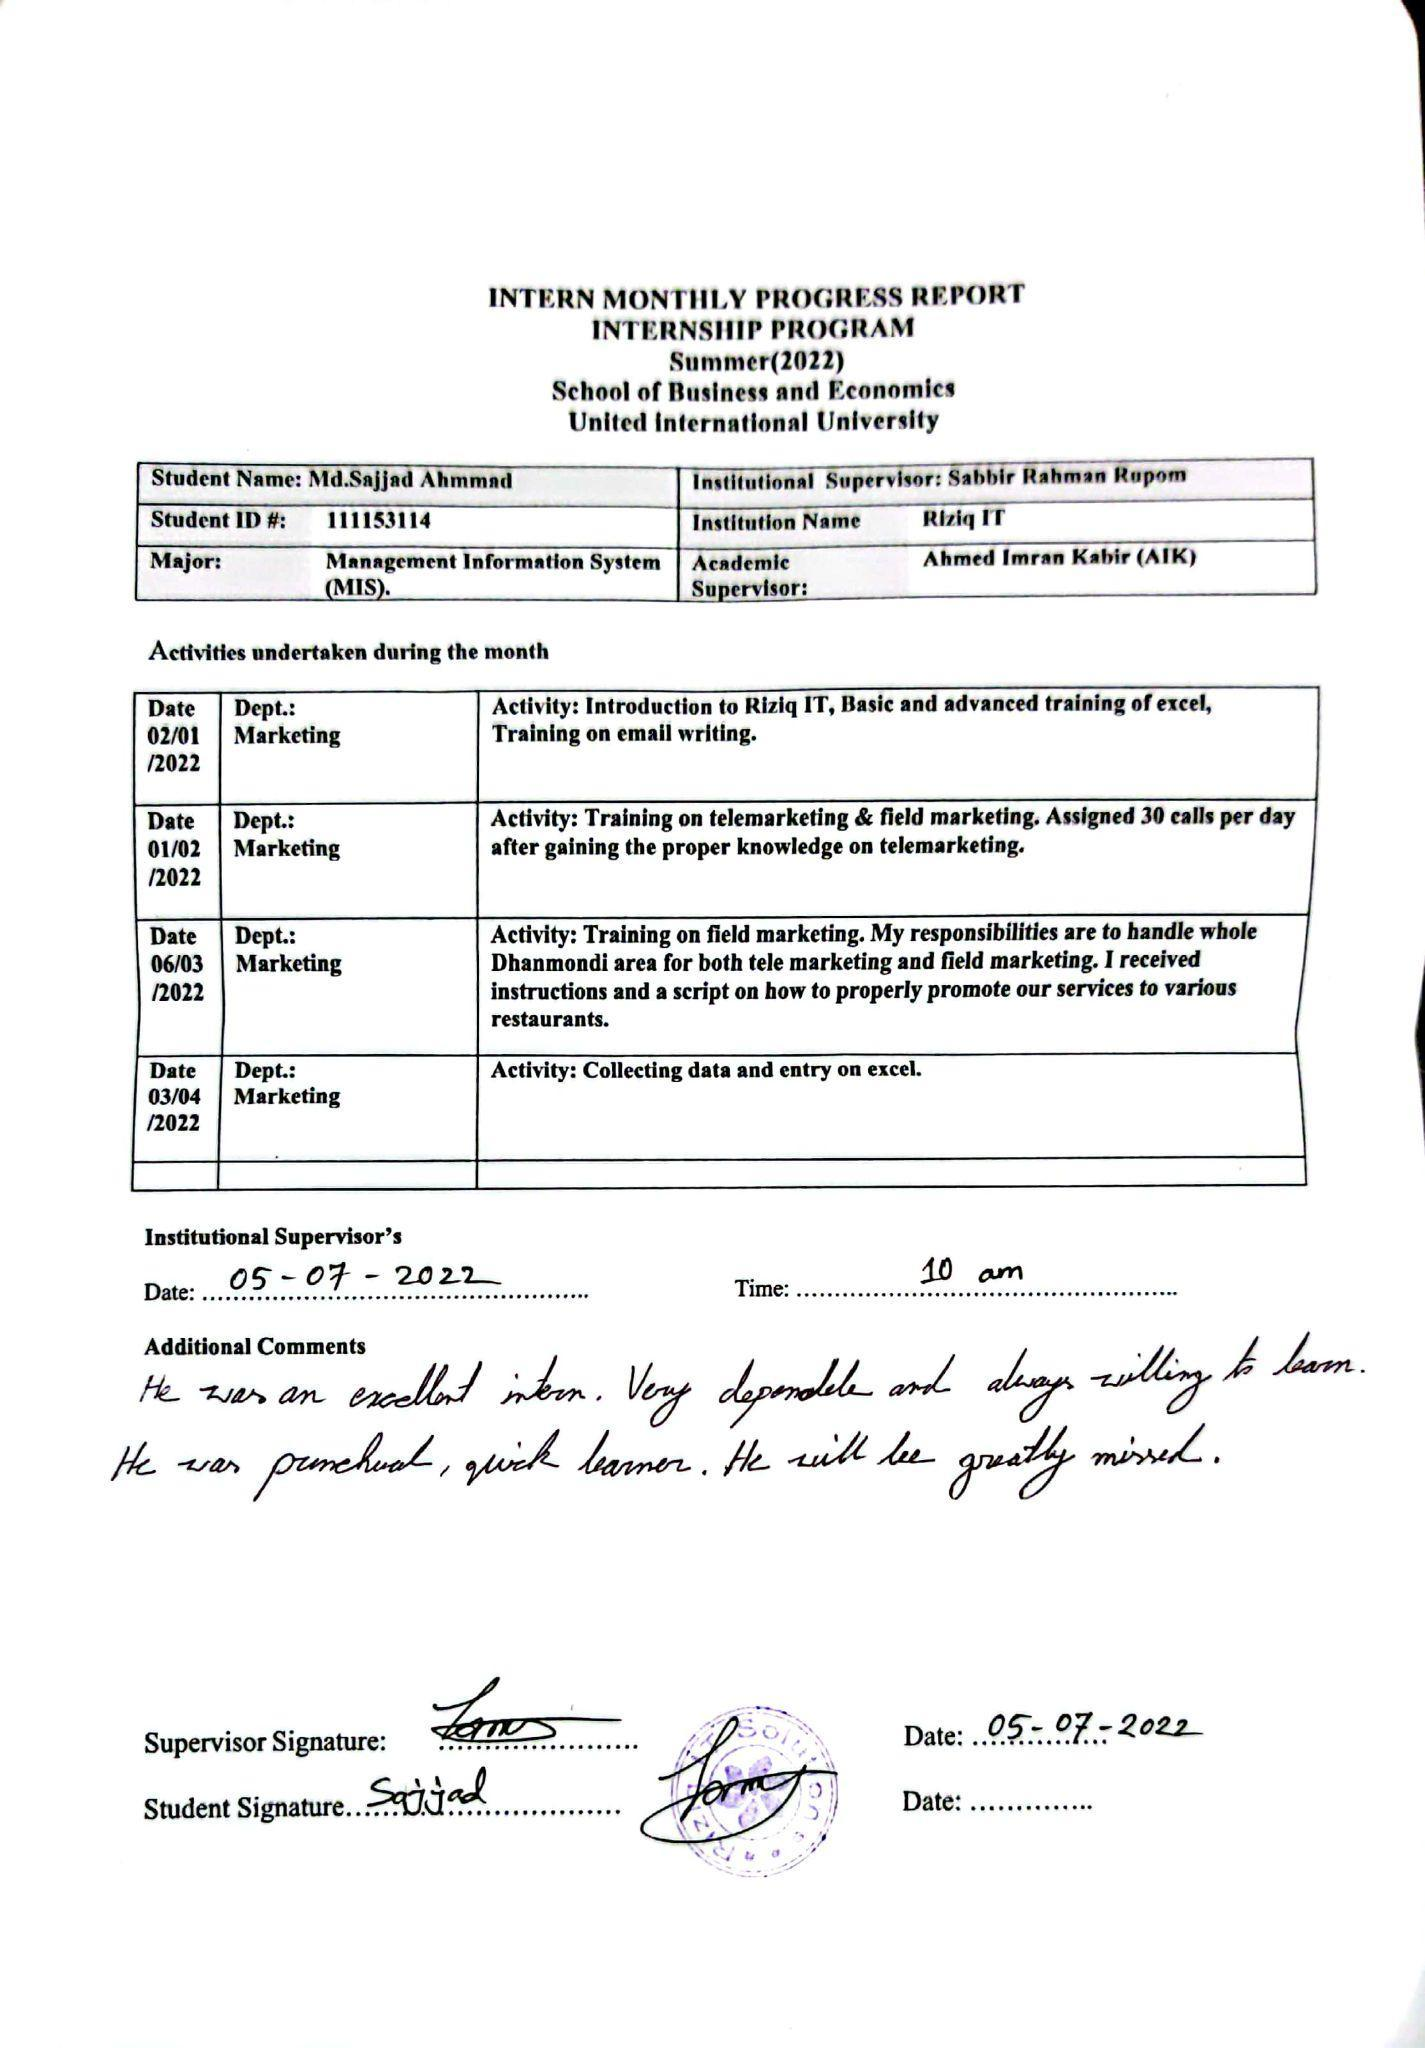 INTERN MONTHLY PROGRESS REPORT
INTERNSHIP PROGRAM
Summer(2022)
School of Business and Economics
United International University
Student Name: Md.Sajjad Ahmmad
Institutional Supervisor: Sabbir Rahman Rupom
Student ID #: 111153114
Institution Name Riziq IT
Major: Management Information System
(MIS).
Academic Ahmed Imran Kabir (AIK)
Supervisor:
Activities undertaken during the month
Date
02/01
/2022
Dept.:
Marketing
Activity: Introduction to Riziq IT, Basic and advanced training of excel,
Training on email writing.
Date
01/02
/2022
Dept.:
Marketing
Activity: Training on telemarketing & field marketing. Assigned 30 calls per day
after gaining the proper knowledge on telemarketing.
Date
06/03
/2022
Dept.:
Marketing
Activity: Training on field marketing. My responsibilities are to handle whole
Dhanmondi area for both tele marketing and field marketing. I received
instructions and a script on how to properly promote our services to various
restaurants.
Date
03/04
/2022
Dept.:
Marketing
Activity: Collecting data and entry on excel.
Institutional Supervisor's
Date: 05-07-2022
Time: 10 am
Additional Comments
He was an excellent intern. Very dependele and always willing to learn.
He was punchual, quick learner. He will be greatly missed.
Supervisor Signature:
Date: 05-07-2022
Student Signature Sajjad
Date:
IT Solutions